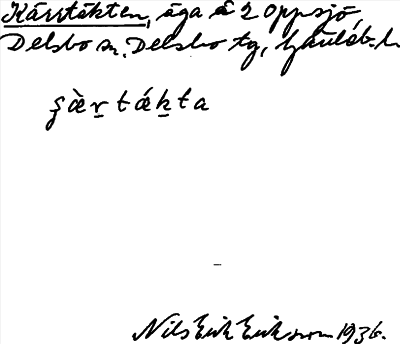 Kärrtäkten, äga å 2 Oppsjö
Delsbo sn. Delsbo tg, Gävleb. l.
ʂæ̀r tǽkta
Nils Erik Eriksson 1936.